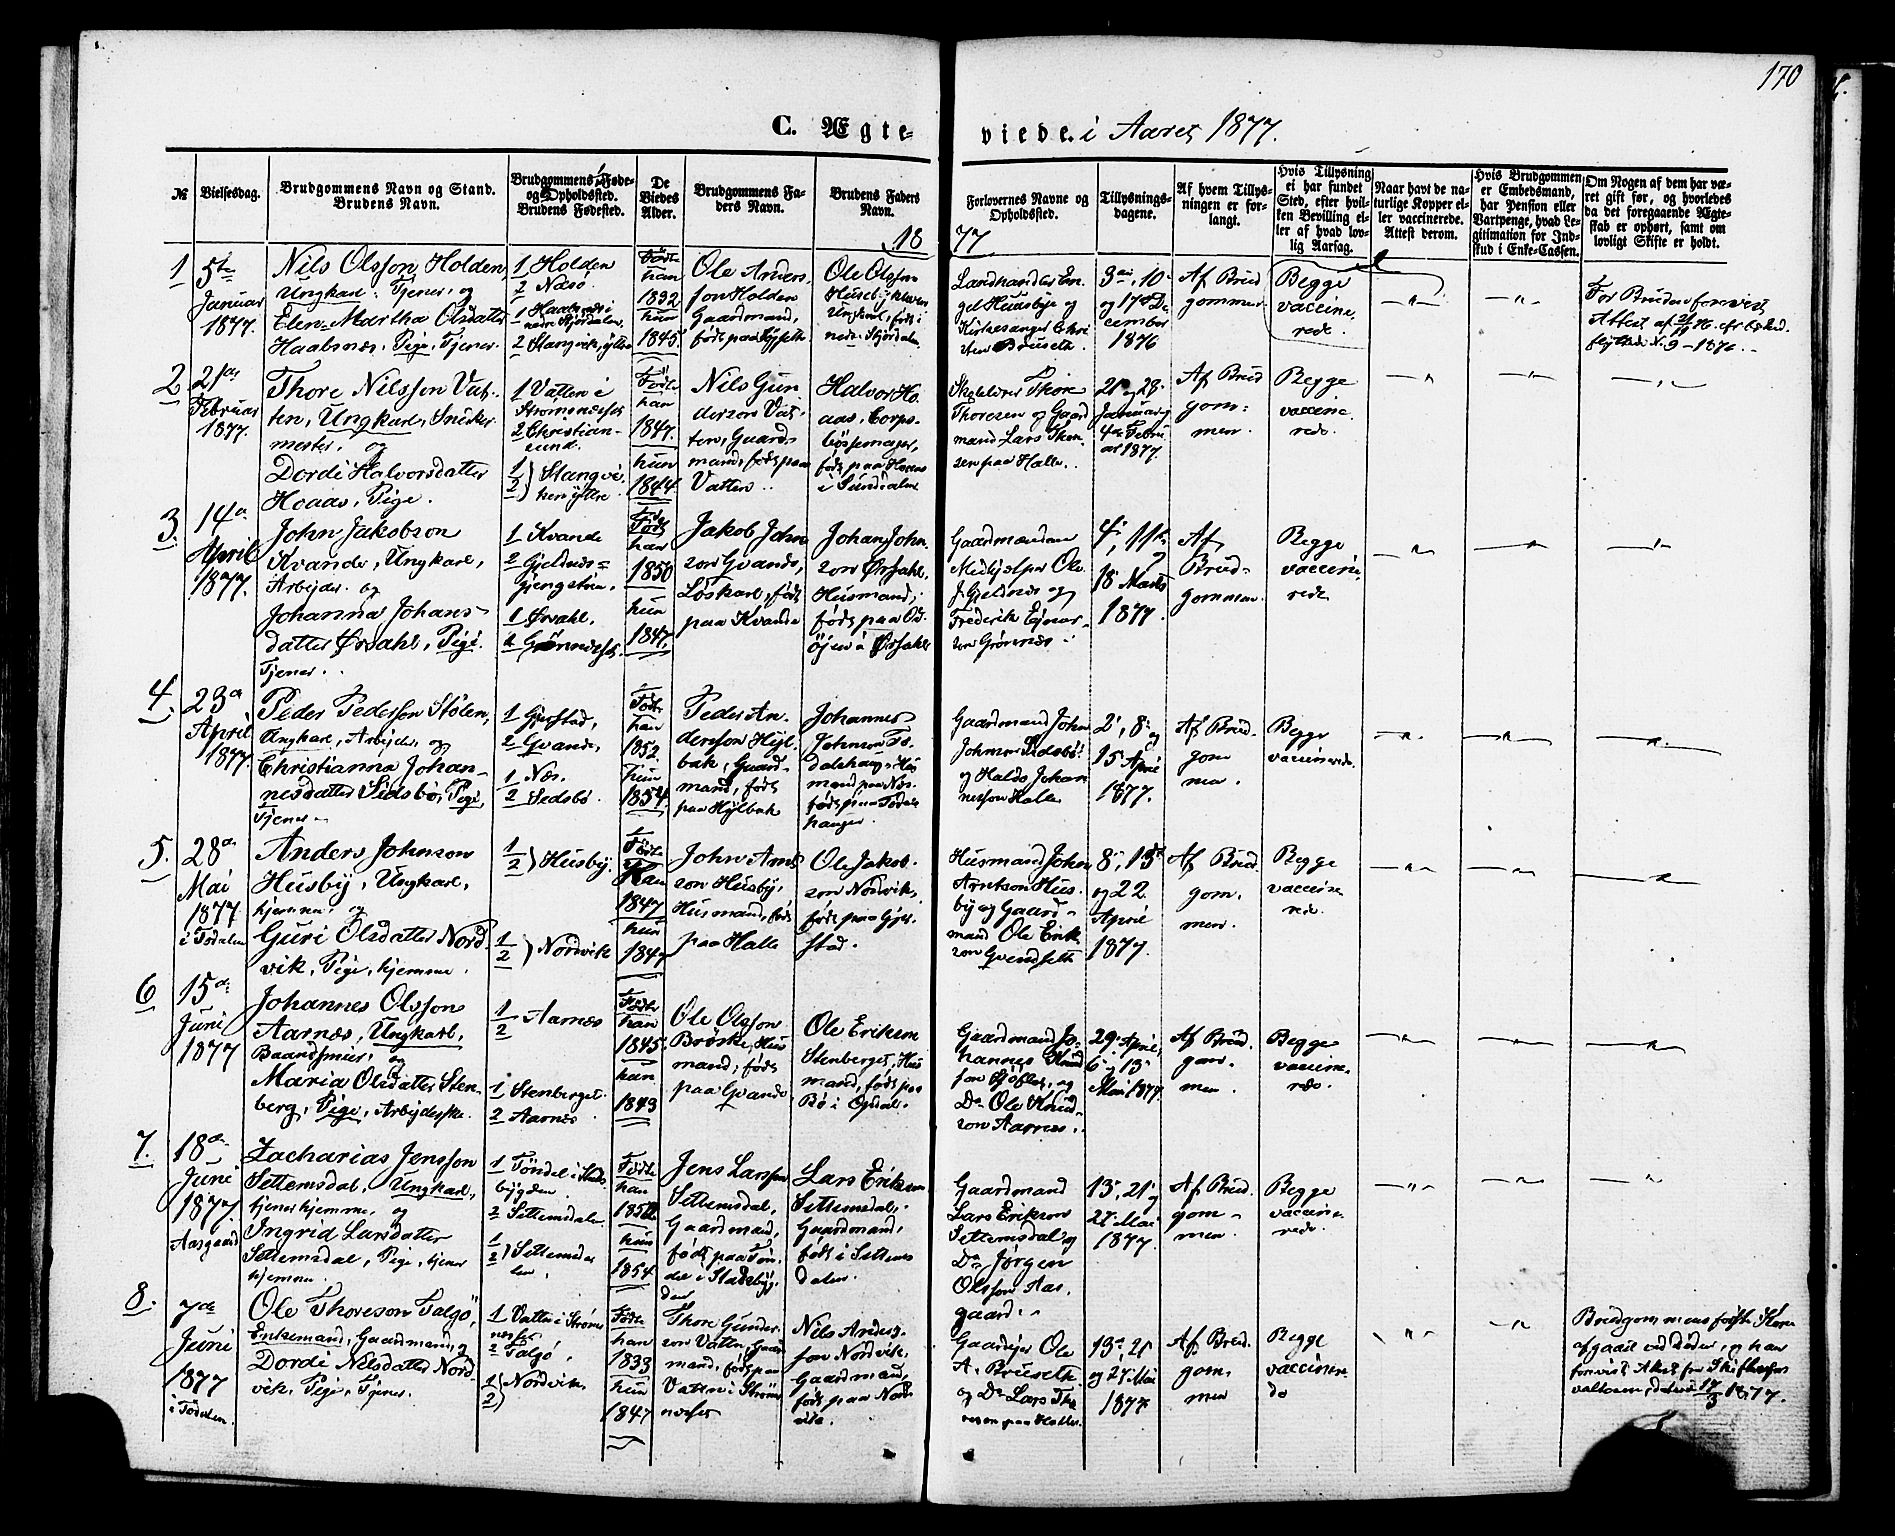 170
C. Ægte-
viede i Aaret 1877.
№
Vielsesdag.
Brudgommens Navn og Stand.
Brudens Navn.
Brudgommens Føde-
og Opholdssted.
Brudens Fødested.
De
Viedes
Alder.
Brudgommens Fa-
ders Navn.
Brudens Faders
Navn.
Forlovernes Navne og
Opholdssted.
Tillysnings-
dagene.
Af hvem Tillys-
ningen er for-
langt.
Hvis Tillysning
ei har fundet
Sted, efter hvil-
ken Bevilling el-
ler af hvad lov-
lig Aarsag.
Naar havt de na-
turlige Kopper el-
ler vaccinerede.
Attest derom.
Hvis Brudgommen
er Embedsmand,
har Pension eller
Vartpenge, hvad Le-
gitimation for Ind-
skud i Enke-Cassen.
Om Nogen af dem har væ-
ret gift før, og hvorledes
da det foregaaende Ægte-
skab er ophørt, samt om
lovligt Skifte er holdt.
18
77
1
5te
Januar
1877.
Nils Olsson Holden
Ungkarl, Tjener, og
Elen Martha Olsdatter
Haabsnæs, Pige, Tjener
1 Holden
2 Næsö
nedre Stjördalen
2 Stangvik, yttre
Födte
han
1832
hun
1845
Ole Anders-
son Holden
Gaardmand,
Ole Olsson
Ungkarl, föd i
nedre Stjördalen
Landhandler En-
gel Huusbye og
Kirkesanger Chri
sten Bruseth.
3die, 10
og 17de De
cember
1876
Af Brud
gommen
Begge
vaccine,
rede.
For Bruden forevist
Attest af
flyttede N. 9 - 1876.
2
2den
Februar
1877.
Thore Nilsson Vat-
ten, Ungkarl, Snidker
mester, og
Dordi Halvorsdatter
Hoaas, Pige.
1 Vatten i
Strömsnæsset
2 Christian-
sund.
1
2) Stangvi-
ken yttre
Födte
han
1847.
hun
1844.
Nils Gun
derson Vat-
ten, Gaard-
mand, födt paa
Vatten
Halvor Ho-
aas, Corps-
bössemager,
födt paa Hoaas
i Sundalen
Skolelærer Thore
Thoresen og Gaard
mand Lars Thore-
sen paa Halle.
21 og 28
Januar og
4de Febru
ar 1877.
Af Brud
gom-
men.
Begge
vaccine
rede.
3.
14de
April
1877.
John Jakobson
Kvande, Ungkarl,
Arbejder og
Johanna Johans-
datter Örsahl, Pige
Tjener.
1 Kvande
2 Gjeldnes-
gjengstuen
1 Örsahl.
2 Grönnæsset.
Födt
han
1850
hun
1847.
Jakob John
son Gvande,
Löskarl, födt
paa Kvande
Johan John-
son Örsahl,
Husmand,
födt paa
Gaardmændene
Medhjælper Ole
J. Gjeldnes og
Frederik Ejnar-
son Grönnæs
4, 11te
og
18 Marts
1877.
Af
Brud-
gommen.
Begge
vaccine,
rede
4.
23de
April
1877
Peder Pederson Stölen,
Ungkarl, Arbejder, og
Christianna Johan-
nesdatter Sedsbö, Pige,
Tjener
1 Gjelstad,
2 Gvande,
1 Næs.
2 Sedsbö.
Födte
han
1852.
hun
1854.
Peder An-
dersson Hyl-
bak, Gaard-
mand, födt
paa Hylbak
Johannes
Johnson To-
dalshaug, Hus
mand paa Næs.
födt paa Todals
hauger.
Gaardmand John
Johnson Sedsbö
og Halds Johan
nesson Halle
2, 8 og
15 April
1877.
Af Brud-
gom
men.
Begge
vaccinerede.
5.
28de
Mai
1877
i Tödalen
Anders Johnson
Husby, Ungkarl,
hjemme, og
Guri Olsdatter Nord-
vik, Pige, hjemme.
1
2) Husby.
1
2) Nordvik
Födte
Han
1847
hun
1847
John Arnt
son Husby,
Husmand, födt
paa Halle
Ole Jakob-
son Nordvik,
födt paa Gjel-
stad.
Husmand John
Arntson Hus-
by og Gaard-
mand Ole Erik
son Gvendseth
8, 15de
og 22
April
1877.
Af Brud
gom-
men.
Begge
vaccine
rede.
6
15de
Juni
1877
Johannes Olsson
Aarnæs, Ungkarl,
og
Maria Olsdatter Sten-
berg, Pige, Arbejderske.
1
2 Aarnæs
1 Stenberget
2 Aarnæs
Födte
han
1845
hun
1843
Ole Olsson
Brøske, Hus
mand, födt
paa Gvande
Ole Eriksen
Stenberget, Hus
mand, födt paa
Bö i Opdal.
Gaardmand Jo-
hannes Knud
son og
Do Ole Knud-
son Aarnæs.
29 April,
6 og 13
Mai 1877
Af Brud.
gom-
men.
Begge
vaccine-
rede.
7.
18de
Juni
1877.
Aasgaard
Zacharias Jensson
Settemsdal, Ungkarl,
tjener hjemme, og
Ingrid Larsdatter
Settemsdal, Pige, tjener
hjemme.
1 Töndel i Stads-
bygden.
2 Settemsdalen
1
2) Settemsda
len
Födte
han
hun
1854
Jens Larsson
Settemsdal,
Gaardmand,
födt paa Tön-
del i Stadsbyg-
den
Lars Erikson
Settemsdal,
Gaardmand,
födt i Settems
dalen.
Gaardmand
Lars Erikson
Settemsdal og
Do Jörgen
Olsson Aas-
gaard.
13, 21 og
27 Mai
1877.
Af Brud.
gom-
men.
Begge
vaccine-
rede.
8.
7de
Juni
1877
i Tödalen.
Ole Thoreson Talgö,
Enkemand, Gaardmand, og
Dordi Nilsdatter Nord-
vik, Pige, Tjener.
1 Vatten i Ströms
nesset
2 Talgö.
1
2) Nordvik
Födte
han
1833
hun
1847
Thore Gunder-
son Vatten, Gaard
mand, födt paa
Vatten i Ströms
næsset
Nils Anders-
son Nordvik,
Gaardmand,
födt paa Nord
vik.
Gaardejer Ole
A. Bruseth
og Do Lars Tho
resen paa Halle.
13, 21
og 27 Mai
1877
Af Brud.
gom-
men
Begge
vaccinere
de
Brudgommens første Kone
afgaaet ved Döden, og han
forevist Attest fra Skifteför-
valteren, dateret 17/3 1877.